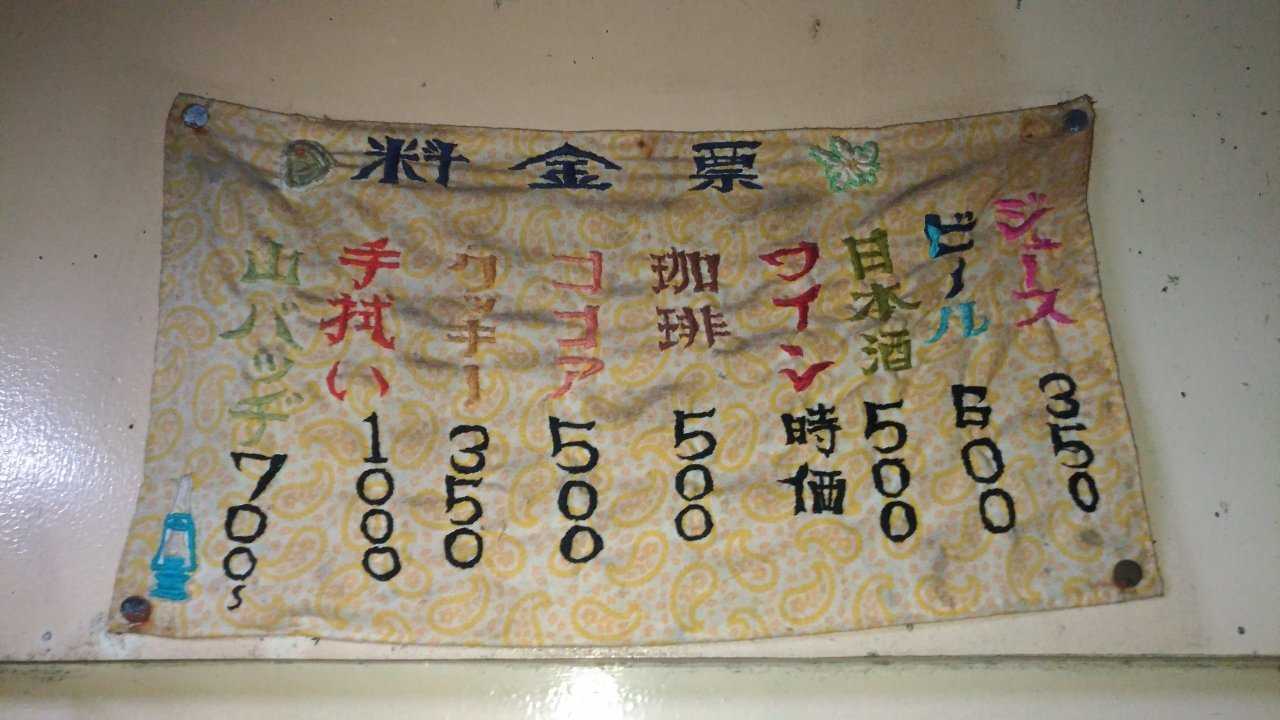 料金票
ジュース 350
ビール 600
日本酒 500
ワイン 時価
珈琲 500
ココア 500
クッキー 350
手拭い 1000
山バッヂ 700~